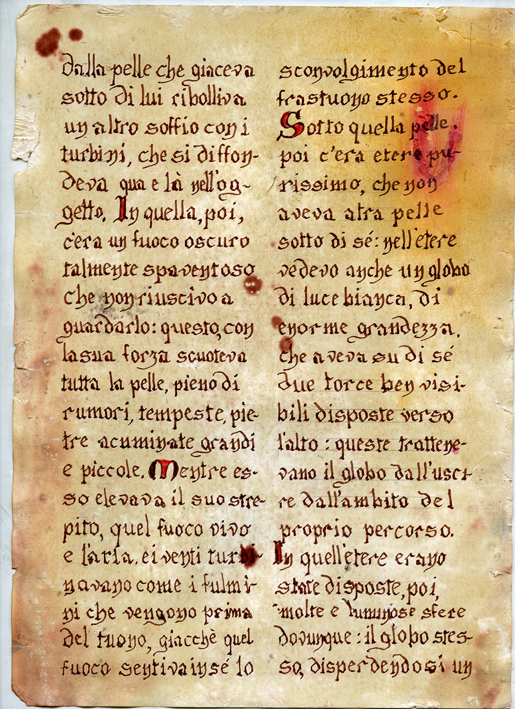 dalla pelle che giaceva
sotto di lui ribolliva
un altro soffio con i
turbini, che si diffon-
deva qua e là nell'og-
getto. In quella, poi,
c'era un fuoco oscuro
talmente spaventoso
che non riuscivo a
guardarlo: questo, con
la sua forza scuoteva
tutta la pelle, pieno di
rumori, tempeste, pie-
tre acuminate grandi
e piccole. Mentre es-
so elevava il suo stre-
pito, quel fuoco vivo
e l'aria. e i venti turbi-
navano come i fulmi-
ni che vengono prima
del tuono, giacchè quel
fuoco sentiva in sé lo
sconvolgimento del
frastuono stesso.
Sotto quella pelle,
poi c'era etere pu-
rissimo, che non
aveva atra pelle
sotto di sé: nell'etere
vedevo anche un globo
di luce bianca, di
enorme grandezza,
che aveva su di sé
due torce ben visi-
bili disposte verso
l'alto: queste trattene-
vano il globo dall'usci-
re dall'ambito del
proprio percorso.
In quell'etere erano
state disposte, poi,
molte e luminose sfere
dovunque: il globo stes-
so, disperdendosi un